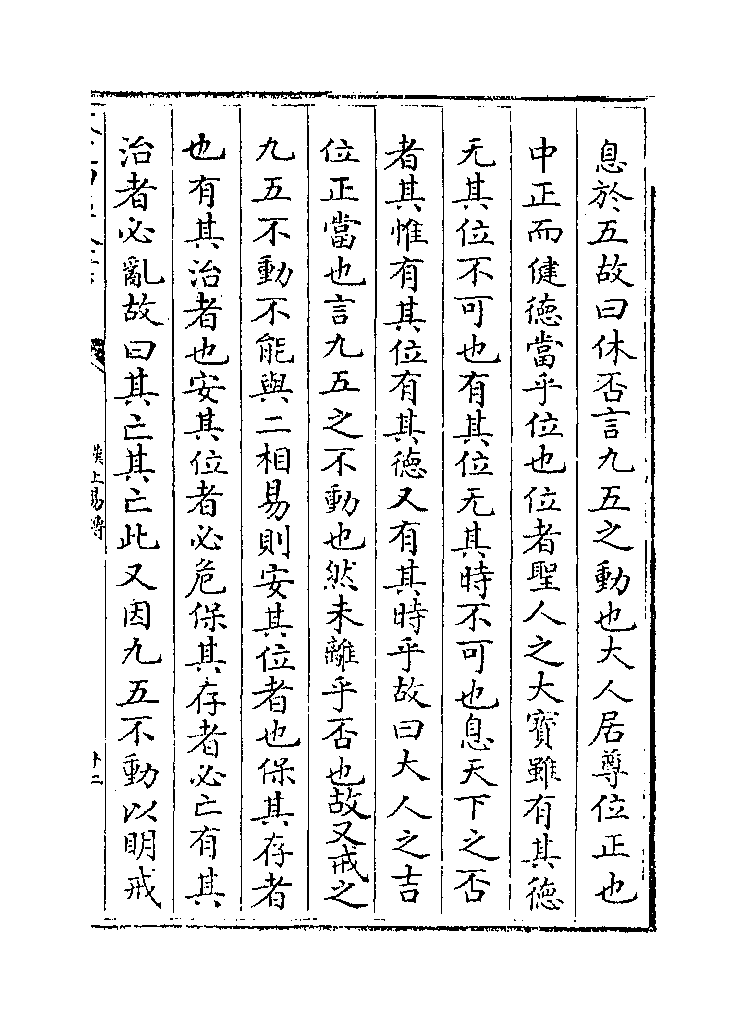 息於五故曰休否言九五之動也大人居尊位正也
中正而健德當乎位也位者聖人之大寶雖有其德
无其位不可也有其位无其時不可也息天下之否
者其惟有其位有其德又有其時乎故曰大人之吉
位正當也言九五之不動也然未離乎否也故又戒之
九五不動不能與二相易則安其位者也保其存者
也有其治者也安其位者必危保其存者必亡有其
治者必亂故曰其亡其亡此又因九五不動以明戒
漢上易傳